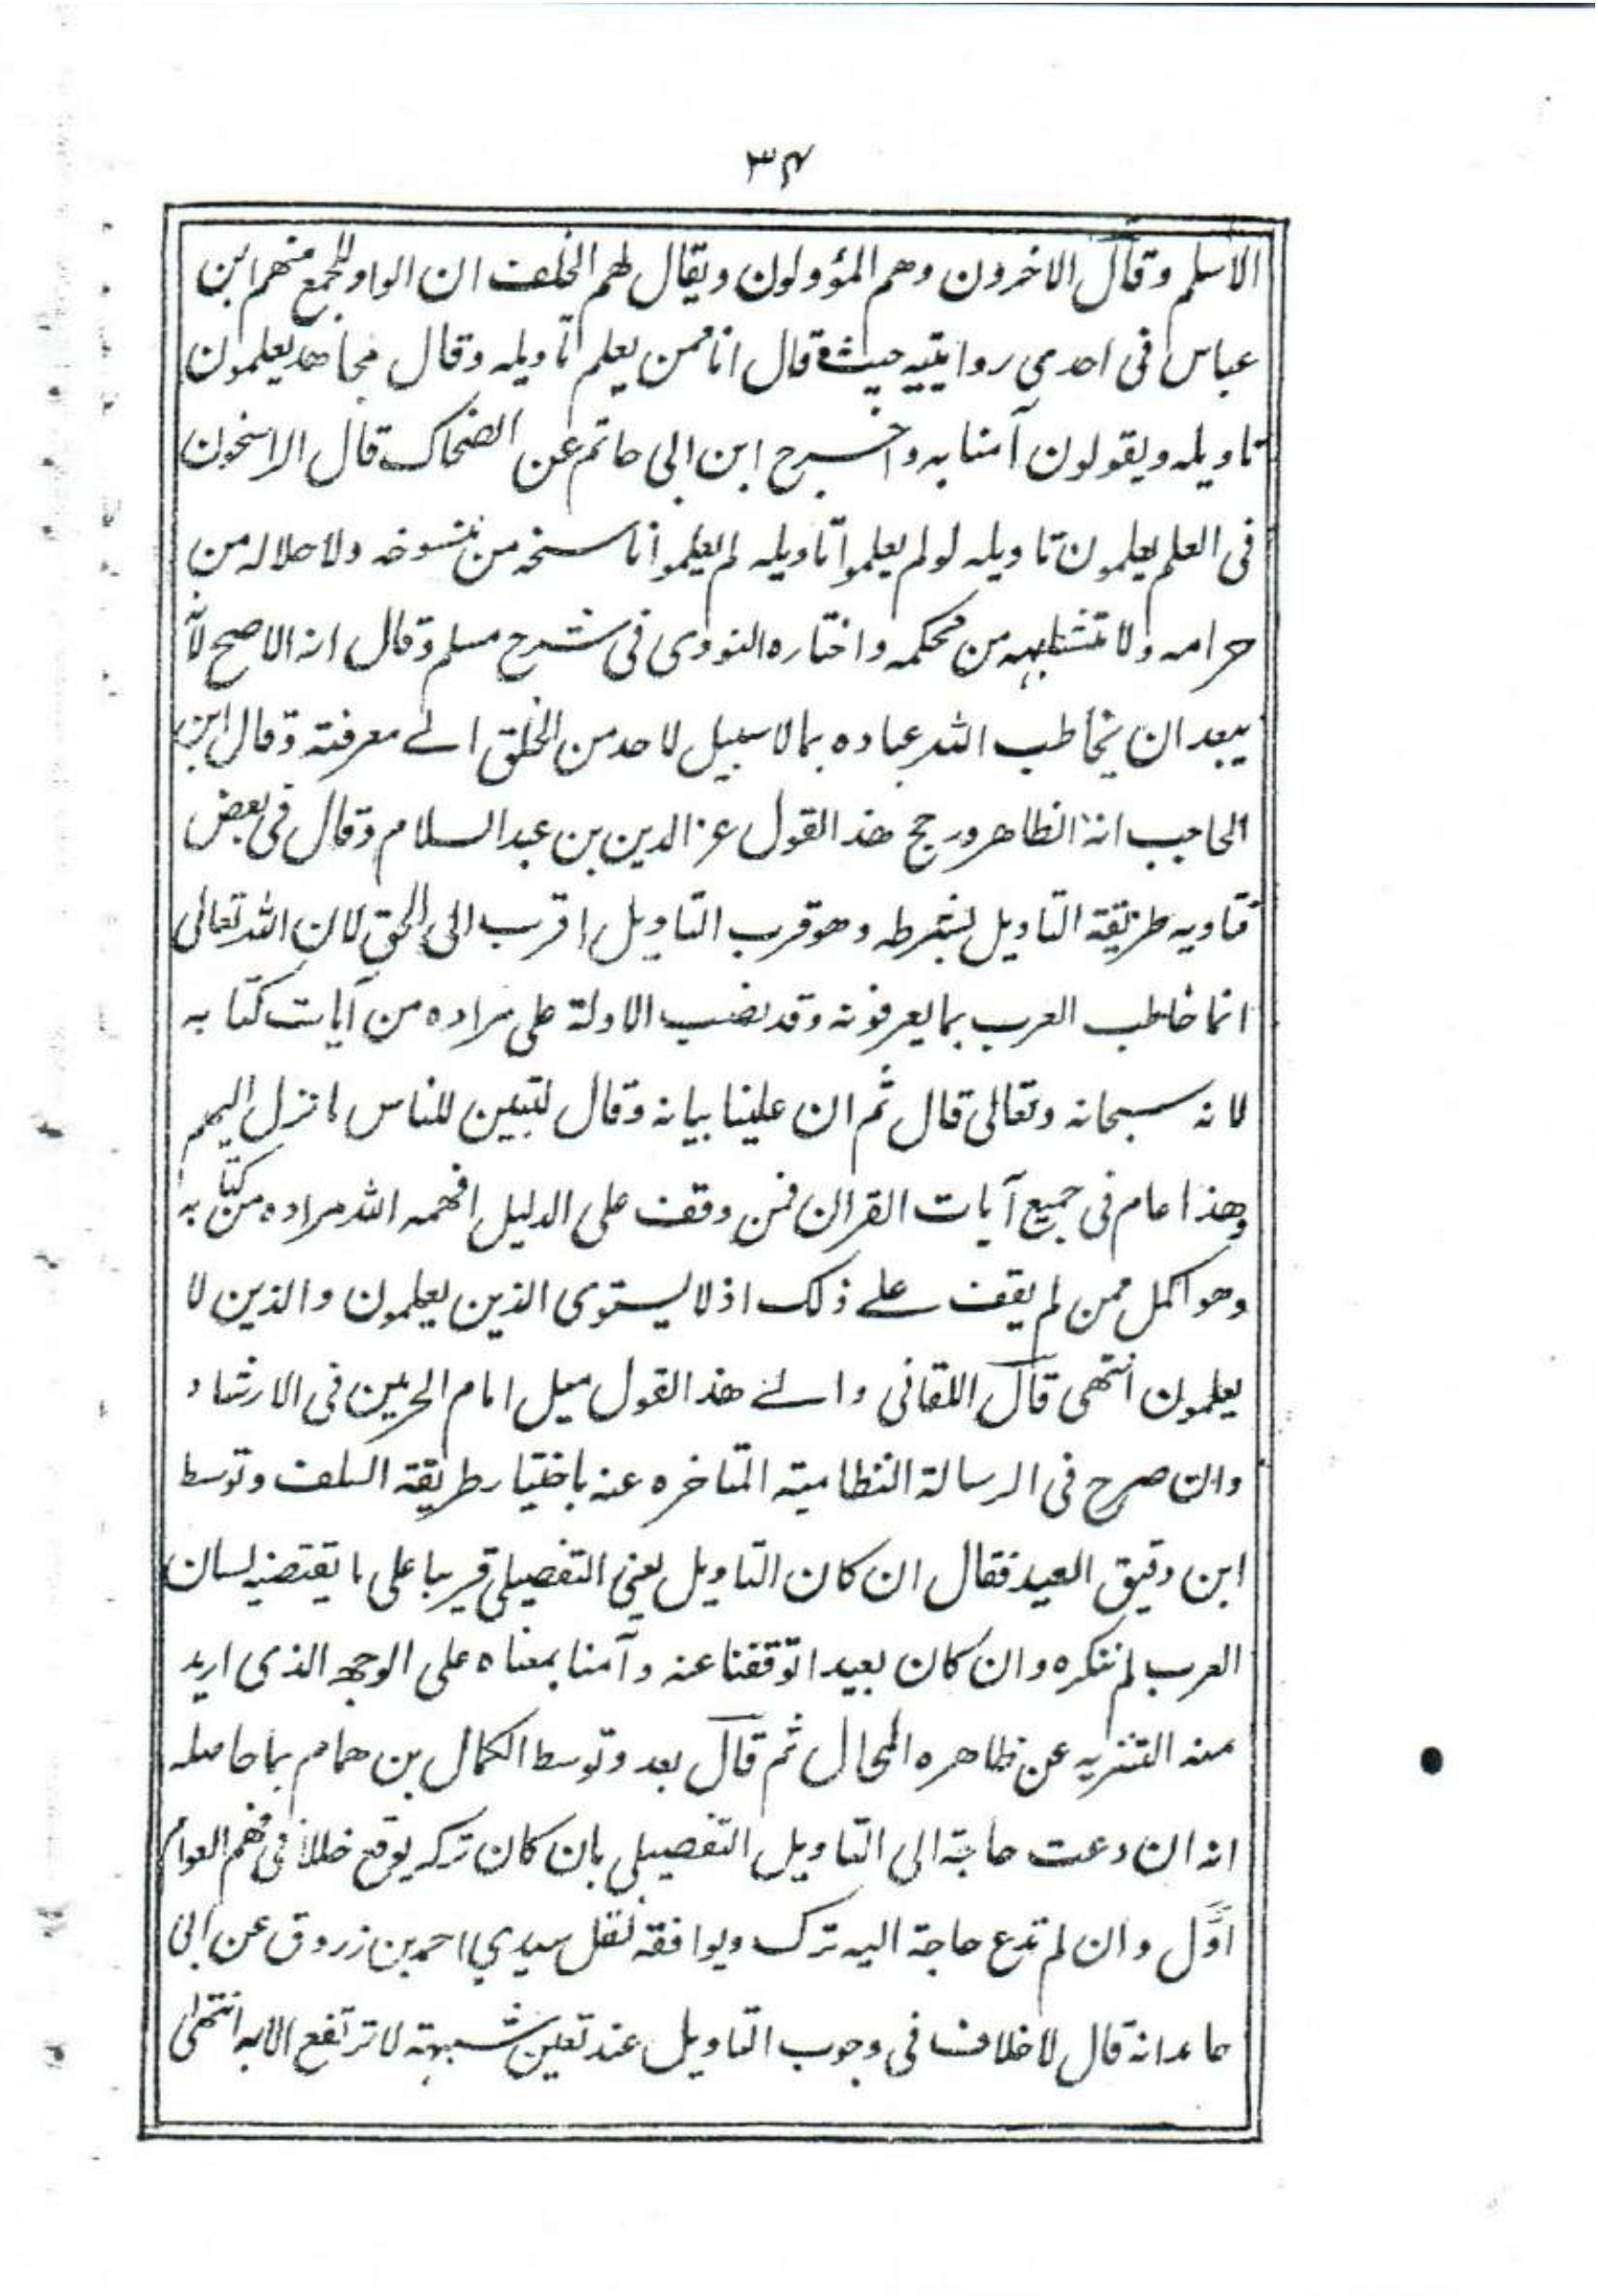 ٣٤
الاسلم وقال الاخرون وهم المؤولون ويقال لهم الخلف ان الواو للجمع منهم ابن
عباس فى احدى روايتيه حيث قال انا ممن يعلم تاويله وقال مجاهد يعلمون
تاويله ويقولون آمنا به واخرج ابن ابى حاتم عن الضحاك قال الراسخون
فى العلم يعلمون تاويله لو لم يعلموا تاويله لم يعلموا ناسخه من منسوخه ولا حلاله من
حرامه ولا متشابهه من محكمه واختاره النووى فى شرح مسلم وقال انه الاصح لا
يبعد ان يخاطب الله عباده بما لا سبيل لاحد من الخلق الے معرفته وقال ابن
الحاجب انه الظاهر ورجح هذ القول عز الدين بن عبد السلام وقال فى بعض
فتاويه طريقة التاويل بشرطه وهو قرب التاويل اقرب الى الحق لان الله تعالى
انما خاطب العرب بما يعرفونه وقد نصب الادلة على مراده من آيات كتابه
لانه سبحانه وتعالى قال ثم ان علينا بيانه وقال لتبين للناس ما نزل اليهم
وهذا عام فى جميع آيات القران فمن وقف على الدليل افهمه الله مراده من كتابه
وهو اكمل ممن لم يقف علے ذلك اذ لا يستوى الذين يعلمون والذين لا
يعلمون انتهى قال اللقانى والے هذ القول ميل امام الحرمين فى الارشاد
وان صرح فى الرسالة النظامية المتاخره عنه باختيار طريقة السلف وتوسط
ابن دقيق العيد فقال ان كان التاويل يعنى التفصيلى قريبا على ما يقتضيه لسان
العرب لم ننكره وان كان بعيدا توقفنا عنه وآمنا بمعناه على الوجه الذى اريد
منه التنزيه عن ظاهره المحال ثم قال بعد وتوسط الكمال بن همام بما حاصله
انه ان دعت حاجة الى التاويل التفصيلى بان كان تركه يوقع خللا فى فهم العوام
اوّل وان لم تدع حاجة اليه ترك ويوافقه نقل سيدي احمد بن زروق عن ابى
حامد انه قال لا خلاف فى وجوب التاويل عند تعين شبهة لا ترتفع الا به انتهى